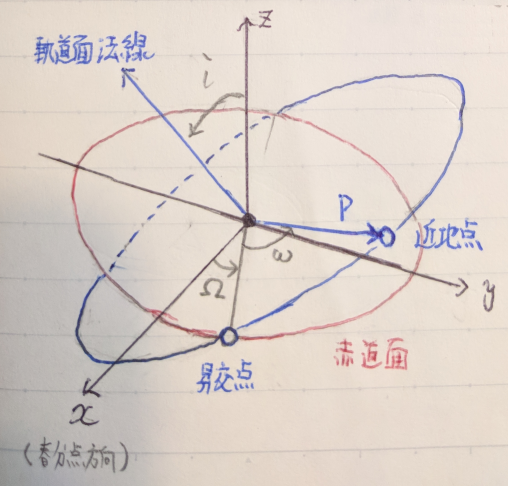 z
軌道面法線
i
P
近地点
ω
Ω
y
昇交点
赤道面
x
(春分点方向)